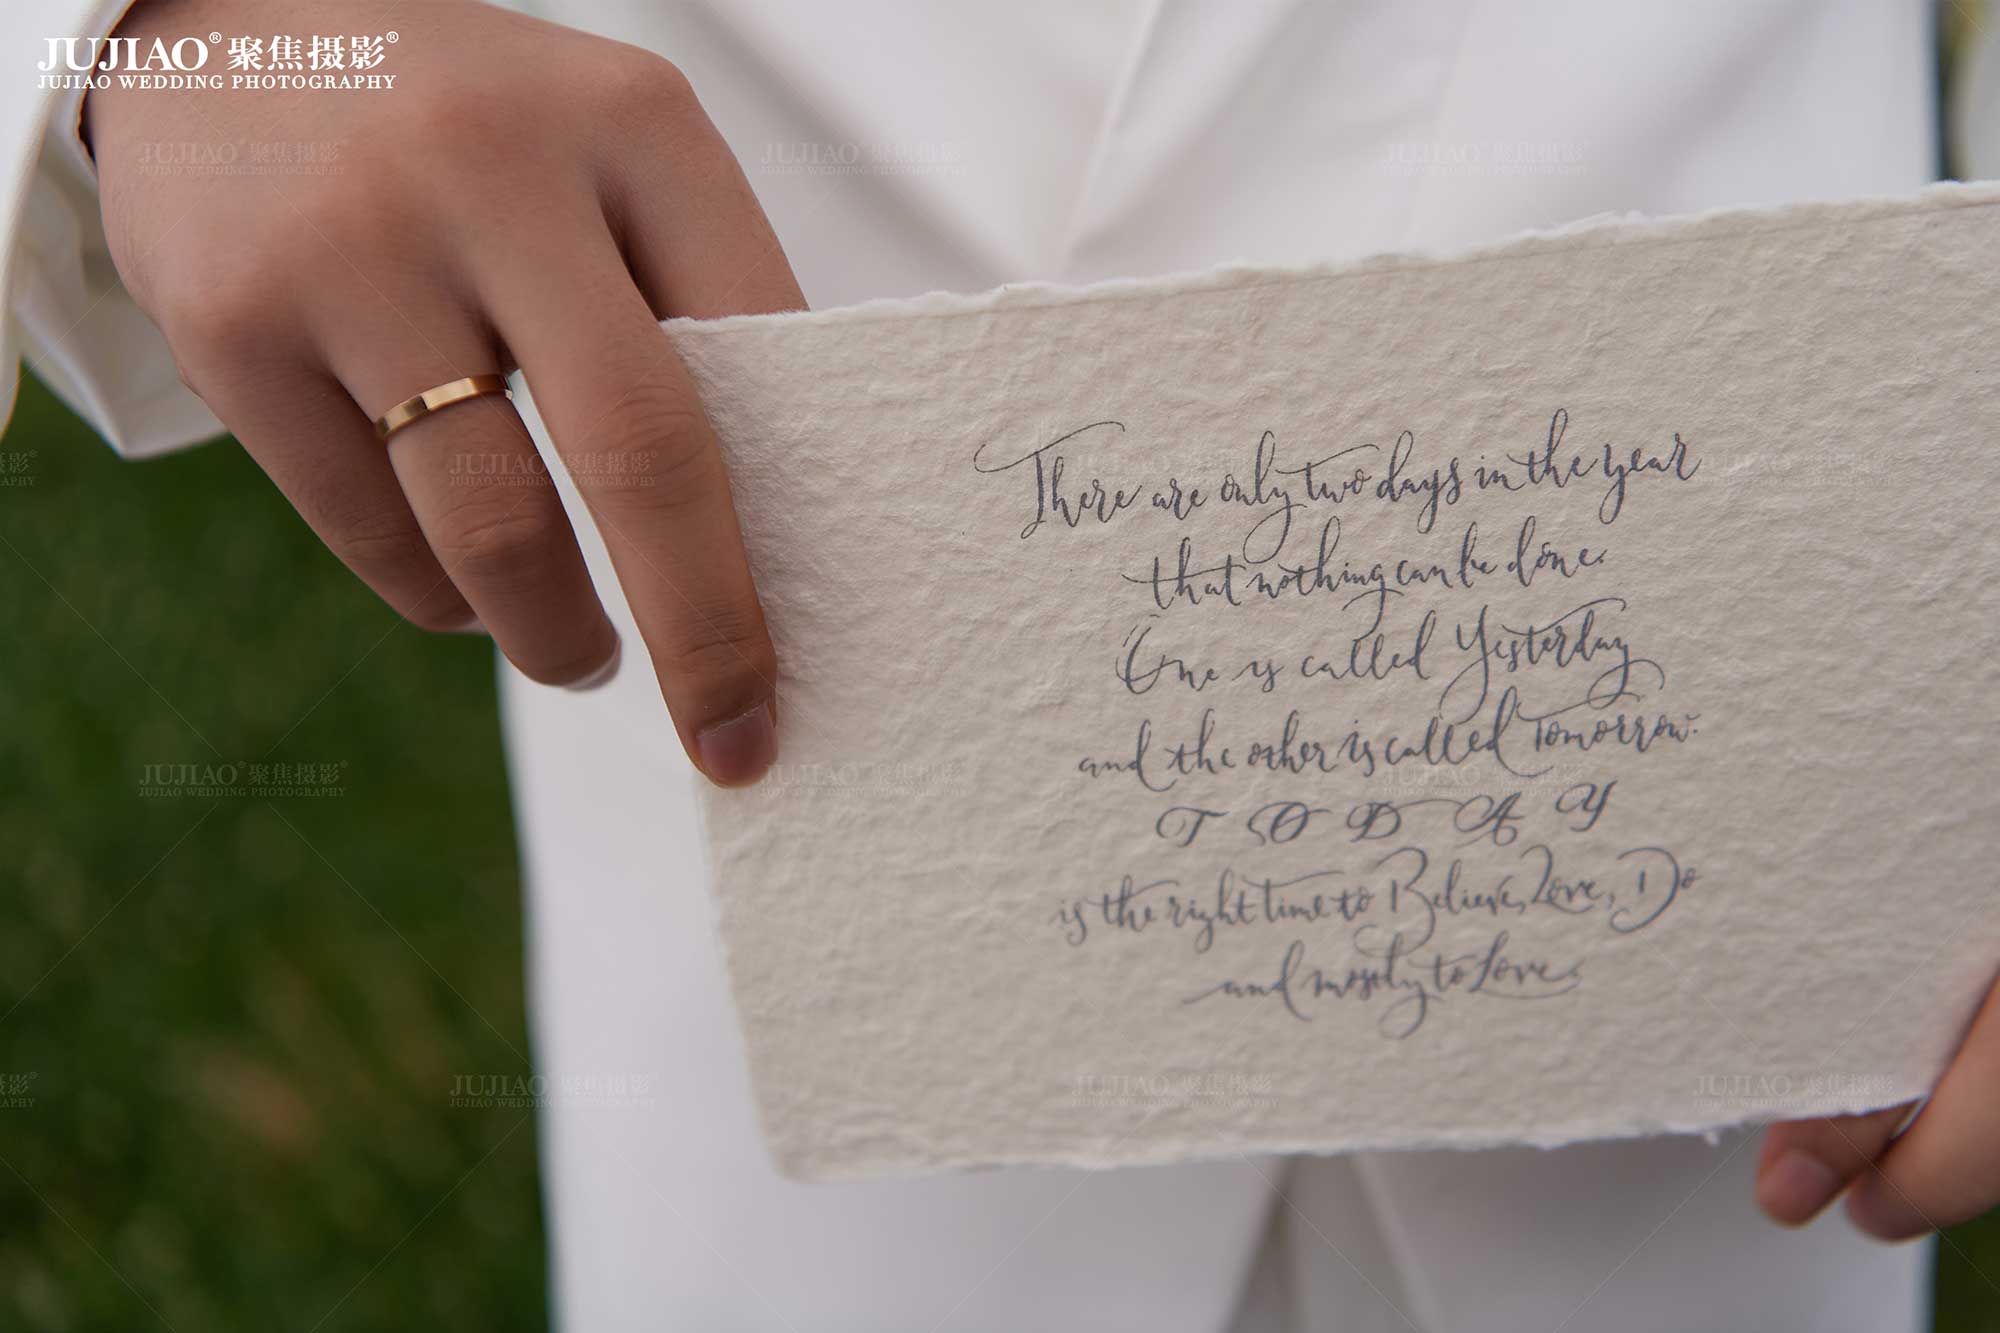 JUJIAO® 聚焦摄影®
JUJIAO WEDDING PHOTOGRAPHY
There are only two days in the year
that nothing can be done.
"One is called Yesterday
and the other is called Tomorrow."
TODAY
is the right time to Believe, Love, Do
and mostly to Love.